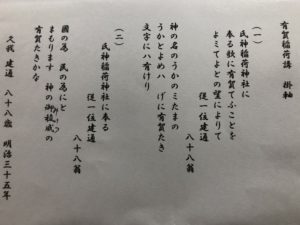 有賀稲荷講　掛軸
（一）
氏神稲荷神社に
奉る歌に有賀てふことを
よミてよとの望によりて
従一位建通
八十八翁
神の名のうかのミたまの
うかとよめハ　げに有賀たき
文字にハ有けり
（二）
氏神稲荷神社に奉る
従一位建通
八十八翁
國の為　民の為にと
まもります　神の御稜威の
みいつ
有賀たきかな
久我　建通　八十八歳　明治三十五年